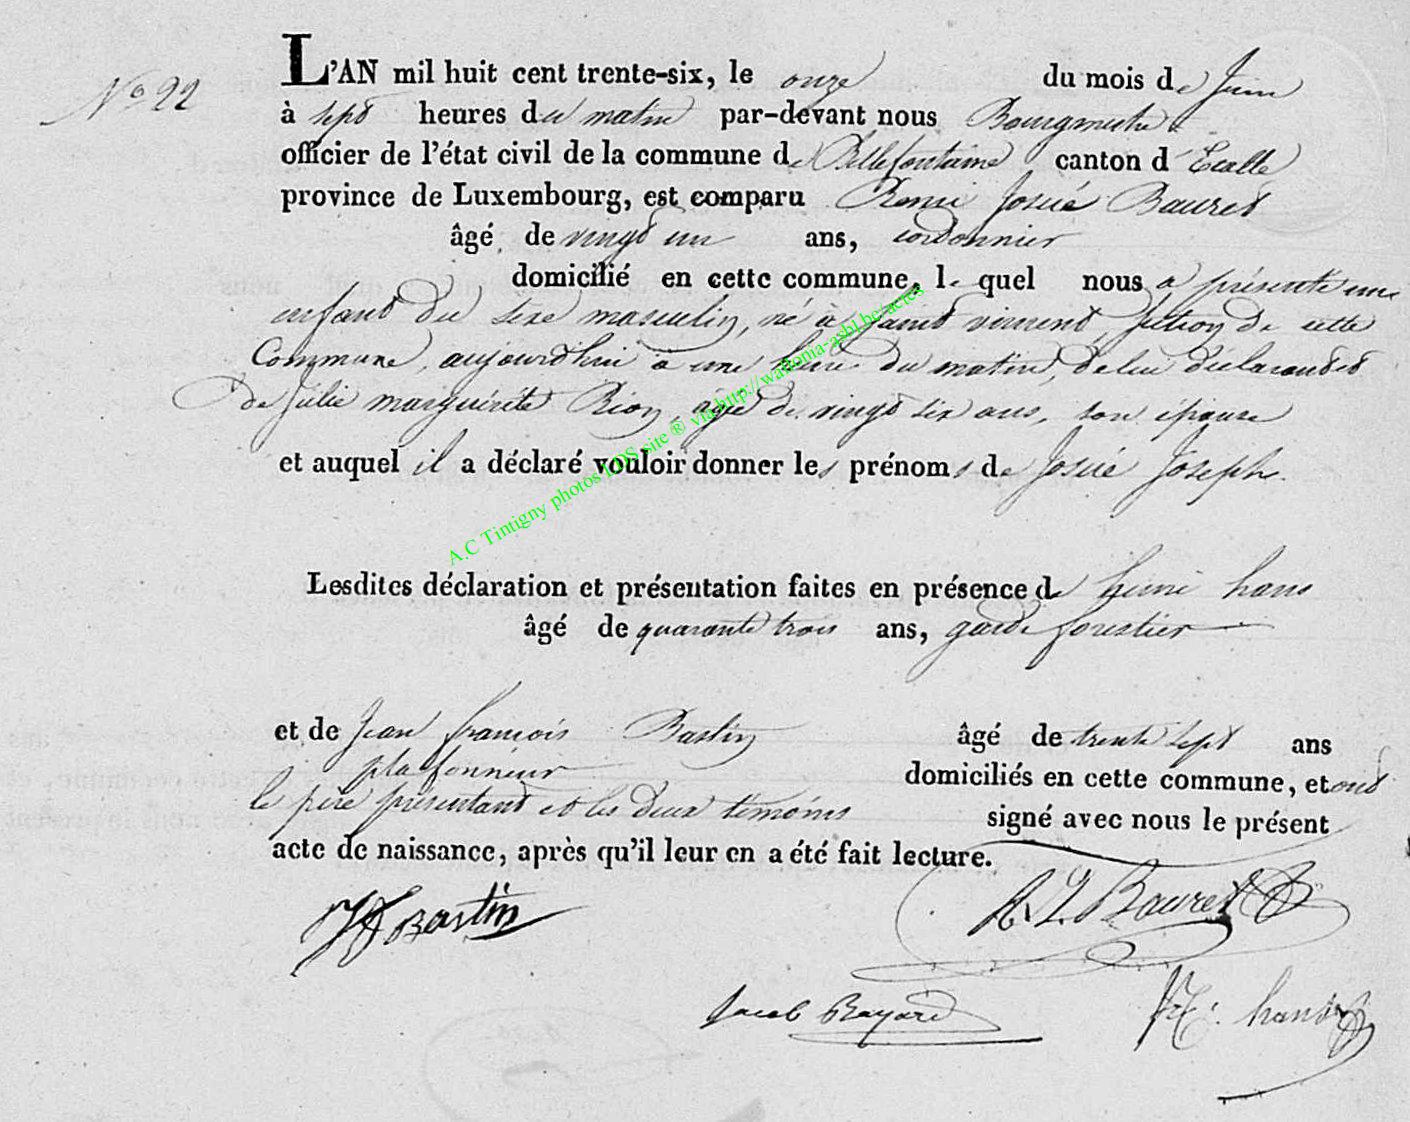 N° 22
L'AN mil huit cent trente-six, le onze du mois de Juin
à sept heures du matin par-devant nous Bourgmestre &
officier de l'état civil de la commune de Bellefontaine canton d'Etalle
province de Luxembourg, est comparu Remi Josué Bauret
âgé de vingt un ans, cordonnier
domicilié en cette commune, le quel nous a présenté une
enfant du sexe masculin, né à Saint vincent, section de cette
Commune, aujourdhui à une heure du matin, de lui déclarant et
de Julie marguérite Rion, agée de vingt six ans, son epouse
et auquel il a déclaré vouloir donner les prénoms de Josué Joseph.
A.C Tintigny photos LDS site ® via http://wallonia-asbl.be/actes
Lesdites déclaration et présentation faites en présence de henri hans
âgé de quarante trois ans, garde forestier
et de Jean françois Bastin âgé de trente sept ans
plafonneur domiciliés en cette commune, et ont
le père présentant et les deux témoins signé avec nous le présent
acte de naissance, après qu'il leur en a été fait lecture.
JF Bastin R. J. Bauret
Jacob Bayard H. hans